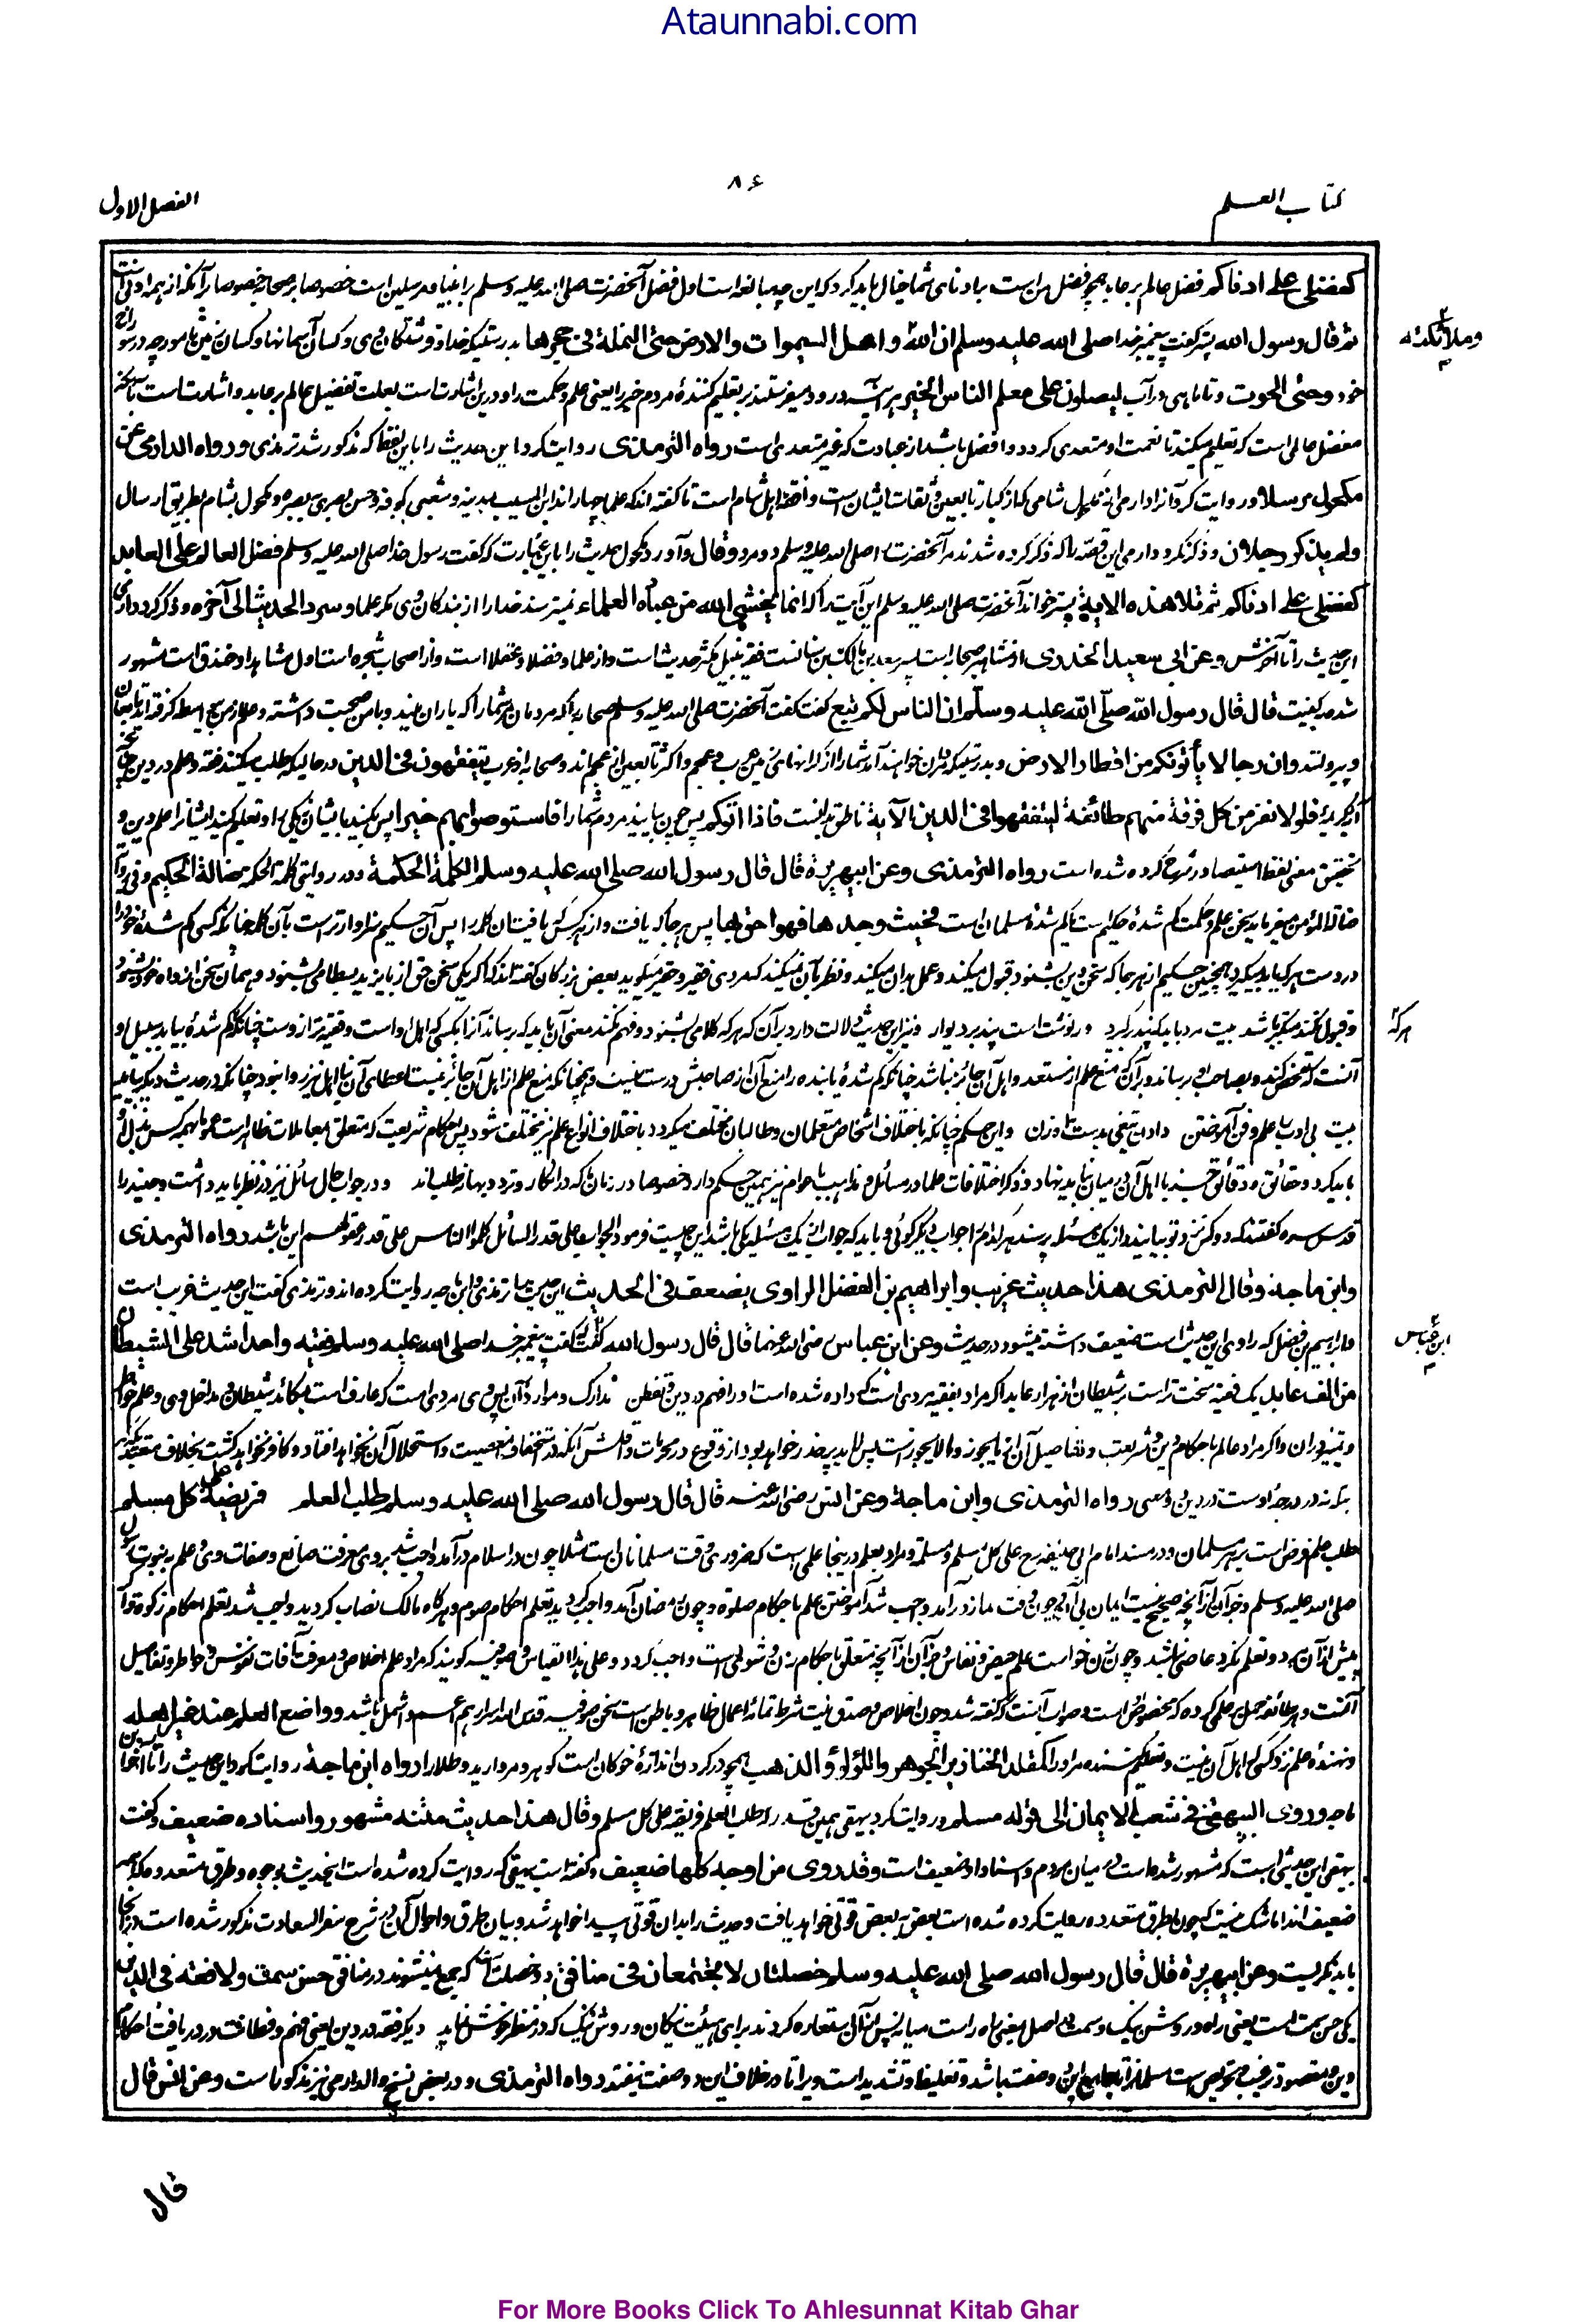 Ataunnabi.com
کتاب العلم
۸۶
الفصل الاول
کفضلی علی ادناکم فضل عالم بر عابد همچو فضل من است بر ادنای شما خیال باید کرد که این چه مبالغه است اول فضل آنحضرت صلی الله علیه وسلم بر انبیا و مرسلین است خصوصا بر صحابه خصوصا بر آنکه از همه ادنی است
ثم قال رسول الله پستر گفت پیغمبر خدا صلی الله علیه وسلم ان الله واهل السموات والارض حتی النملة فی حجرها بدرستیکه خدا و فرشتگان وی و کسان آسمانها و کسان زمین تا مورچه در سوراخ
وملائکته
خود وحتی الحوت و تا ماهی در آب لیصلون علی معلم الناس الخیر هر آئینه درود میفرستند بر تعلیم کنندۀ مردم خیر را یعنی علم و حکمت را و درین اشارت است بعلت تفضیل عالم بر عابد و اشارت است بآنکه
مفضل عالمی است که تعلیم میکند تا نعمت او متعدی گردد و افضل باشد از عبادت که غیر متعدی است رواه الترمذی روایت کرد این حدیث را باین لفظ که مذکور شد ترمذی ورواه الدارمی عن
مکحول مرسلا و روایت کرد آنرا دارمی از مکحول شامی که از کبار تابعین و ثقات ایشان است و افقه اهل شام است تا گفته اند که علما چهار اند ابن المسیب بمدینه و شعبی بکوفه و حسن بصری ببصره و مکحول بشام بطریق ارسال
ولم یذکر رجلان و ذکر نکرد دارمی این قصه را که ذکر کرده شدند مر آنحضرت را صلی الله علیه وسلم دو مرد وقال و آورد مکحول حدیث را باین عبارت که گفت رسول خدا صلی الله علیه وسلم فضل العالم علی العابد
کفضلی علی ادناکم ثم تلا هذه الایة پستر خواند آنحضرت صلی الله علیه وسلم این آیت را که انما یخشی الله من عباده العلماء نمیترسند خدا را از بندگان وی مگر علما وسرد الحدیث الی آخره و ذکر کرد دارمی
این حدیث را تا آخرش وعن ابی سعید الخدری از مشاهیر صحابه است پسر سعد بن مالک بن سنانست فقیه نبیل مکثر حدیث است و از علما و فضلا و عقلا است و از اصحاب شجره است اول مشاهد او خندق است مشهور
شده بکنیت قال قال رسول الله صلی الله علیه وسلم ان الناس لکم تبع گفت گفت آنحضرت صلی الله علیه وسلم صحابه را که مردمان مر شما را که یاران منید و با من صحبت داشته و علم از من بیواسطه گرفته اید تابعان
و پیروانند وان رجالا یأتونکم من اقطار الارض و بدرستیکه مردان خواهند آمد شما را از کرانهای زمین عرب و عجم و اکثر تابعین از عجم اند و صحابه از عرب یتفقهون فی الدین در حالیکه طلب میکنند فقه و علم در دین چنانچه
آیۀ کریمه فلولا نفر من کل فرقة منهم طائفة لیتفقهوا فی الدین الآیة ناطق بدانست فاذا اتوکم پس چون بیایند مردم شما را فاستوصوا بهم خیرا پس بکنید بایشان نیکی را و تعلیم کنید ایشانرا علم دین و
تحقیق معنی لفظ استیصا در شرح کرده شده است رواه الترمذی وعن ابی هریرة قال قال رسول الله صلی الله علیه وسلم الکلمة الحکمة و در روایتی کلمة الحکمة ضالة الحکیم وفی روایة
ضالة المؤمن یعنی باید سخن علم و حکمت گم شدۀ حکیم است یا گم شدۀ مسلمان است فحیث وجدها فهو احق بها پس هر جا که یافت و از هر کس که یافت آن کلمه را پس آن حکیم سزاوارتر است بآن کلمه چنانکه کسی گم شدۀ خود را
در دست هر که یابد بگیرد همچنین حکیم از هر جا که سخن دین بشنود قبول میکند و عمل بدان میکند و نظر بآن نمیکند که مردی فقیر و حقیر میگوید بعض بزرگان گفته اند که اگر یکی سخن حق از بایزید بسطامی بشنود و همان سخن از داه خود بشنود
و قبول نکند متکبر باشد بیت مرد باید که پند گیرد ور نوشته است پند بر دیوار و نیز این حدیث دلالت دارد بر آن که هر که کلامی بشنود و فهم نکند معنی آن باید که برساند آنرا بکسی که اهل او است و فقیه تر از وست چنانکه گم شدۀ بیابد سبیل او
هر که
آنست که تفحص کند و بصاحب او برساند و بر آن که منع علم از مستعد و اهل آن جائز نباشد چنانکه گم شدۀ یابنده را منع آن از صاحبش درست نیست و همچنانکه منع علم از اهل آن جائز نیست اعطای آن بنا اهل نیز روا نبود چنانکه در حدیث دیگر بیاید
بیت بی ادب را علم و فن آموختن دادن تیغی بدست راهزن و این حکم چنانکه باختلاف اشخاص متعلمان و طالبان مختلف میگردد باختلاف انواع علم نیز مختلف شود پس احکام شریعت که متعلق بمعاملات ظاهر است عموما همه کس بذل آن
باید کرد و حقائق و دقائق جز با اهل آن در میان نباید نهاد و ذکر اختلافات علما در مسائل و مذاهب با عوام نیز همین حکم دارد خصوصا در زمان ما که در انکار و تردد بهانه طلب اند و در جواب حال سائل نیز در نظر باید داشت و جنید را
قدس سره گفتند که دو کس نزد تو بیایند و از یک مسئله پرسند هر کدام را جواب دیگر گوئی و باید که جواب یک مسئله یکی باشد این چیست فرمود الجواب علی قدر السائل کلموا الناس علی قدر عقولهم این باشد رواه الترمذی
وابن ماجة وقال الترمذی هذا حدیث غریب وابراهیم بن الفضل الراوی یضعف فی الحدیث این حدیث را ترمذی و ابن ماجه روایت کرده اند و ترمذی گفت این حدیث غریب است
و ابراهیم بن فضل که راوی این حدیث است ضعیف داشته میشود در حدیث وعن ابن عباس رضی الله عنهما قال قال رسول الله گفت گفت پیغمبر خدا صلی الله علیه وسلم فقیه واحد اشد علی الشیطان
ابن عباس
من الف عابد یک فقیه سخت تر است بر شیطان از هزار عابد اگر مراد بفقیه مردی است که داده شده است او را فهم در دین و تفطن مدارک و موارد آن پس وی مردی است که عارف است بمکائد شیطان و مداخل وی و علم خواطر
و تمییز در آن و اگر مراد عالم باحکام دین و شریعت و تفاصیل آن از ما یجوز و ما لا یجوز است پس لابد بر حذر خواهد بود از وقوع در محرمات و اقلش آنکه در استخفاف معصیت و استحلال آن نخواهد افتاد و کافر نخواهد گشت بخلاف متعبدی که
که نه در درجۀ اوست در دین رواه الترمذی وابن ماجة وعن انس رضی الله عنه قال قال رسول الله صلی الله علیه وسلم طلب العلم فریضة علی کل مسلم
طلب علم فرض است بر هر مسلمان و در مسند امام ابی حنیفه رح علی کل مسلم ومسلمة و مراد بعلم درینجا علمی است که ضروری وقت مسلمانان است مثلا چون در اسلام در آمد واجب شد بروی معرفت صانع و صفات وی و علم به نبوت رسول
صلی الله علیه وسلم و جز آن از آنچه صحیح نیست ایمان بی آن و چون وقت نماز در آمد واجب شد آموختن علم باحکام صلوة و چون رمضان آمد واجب گردید تعلم احکام صوم و هر گاه مالک نصاب گردید واجب شد تعلم احکام زکوة و اگر
پیش از آن بمرد و تعلم نکرد عاصی نباشد و چون زن خواست علم حیض و نفاس و جز آن از آنچه متعلق باحکام زن و شوی است واجب گردد و علی هذا القیاس و صوفیه گویند که مراد علم اخلاص و معرفت آفات نفوس و خواطر و تفاصیل
آنست و هر طائفه حمل بر علمی کرده که مخصوص است و صواب آنست که گفته شد و چون اخلاص و صدق نیت شرط تمامۀ اعمال ظاهر و باطن است سخن صوفیه قدس الله اسرارهم اعم و اشمل باشد وواضع العلم عند غیر اهله
و نهندۀ علم نزد کسی که اهل آن نیست و تعلیم کننده مر او را کمقلد الخنازیر الجوهر واللؤلؤ والذهب همچو در گردن اندازۀ خوکان است گوهر و مروارید و طلا را رواه ابن ماجة روایت کرد این حدیث را تا آخر ابن
ماجه وروی البیهقی فی شعب الایمان الی قوله مسلم و روایت کرد بیهقی همین قدر را طلب العلم فریضة علی کل مسلم وقال هذا حدیث متنه مشهور واسناده ضعیف و گفت
بیهقی این حدیثی است که مشهور شده است در میان مردم و اسناد او ضعیف است وقد روی من اوجه کلها ضعیف و گفته است بیهقی که روایت کرده شده است این حدیث بوجوه و طرق متعدده که همه
ضعیف اند اما شک نیست که چون بطرق متعدده روایت کرده شده است بعض به بعض قوتی خواهد یافت و حدیث را بدان قوتی پیدا خواهد شد و بیان طرق و احوال آن در شرح سفر السعادت مذکور شده است در آنجا
باید نگریست وعن ابی هریرة قال قال رسول الله صلی الله علیه وسلم خصلتان لا یجتمعان فی منافق دو خصلت است که جمع نمیشوند در منافق حسن سمت ولا فقه فی الدین
یکی حسن سمت است یعنی راه و روش نیک و سمت در اصل بمعنی راه راست میانه پس از آن استعاره کردند برای هیئت نیکان و روش نیک که در نظر خوش نماید دیگر فقه در دین یعنی فهم و فطانت در دریافت احکام
دین و مقصود ترغیب و تحریص است مسلمانرا تا جامع این دو صفت باشد و تغلیظ و تشدید است ویرا تا در خلاف این دو صفت نیفتد رواه الترمذی و در بعض نسخ والدارمی نیز مذکور است وعن انس قال
قال
For More Books Click To Ahlesunnat Kitab Ghar